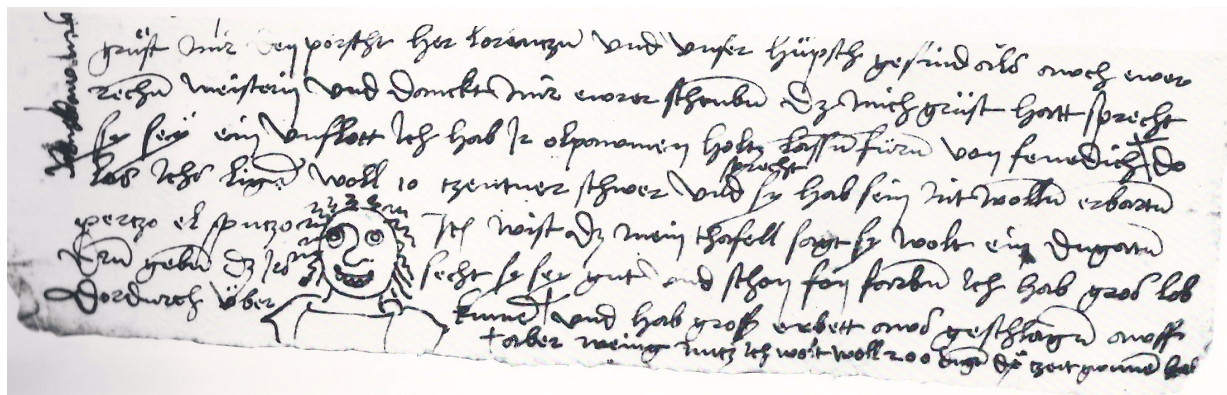 grüst mir den porscht her lorentzn und unser hüpsch gesind als awch ewer
rechn meisterin und danckt mir ewrer schtubn dz mich grüst hatt sprecht
sy sey ein unflott Ich hab ir olpawmen holtz lassn fürn von fenedich do
los Ichs lign woll 10 tzentner schwer und sprecht sy hab sein nit wolln erbartn
pertzo el sputzo Itẽ wist dz mein thafell sagt sy wolt ein dugatn
drum gebn dz Irs secht sy sey gut und schon fon farbn Ich hab gros lob
dordurch über kumen und hab gros erbett aws geschlagn awff
aber wenig nutz Ich wolt woll 200 dugn dy tzeit gwunnen